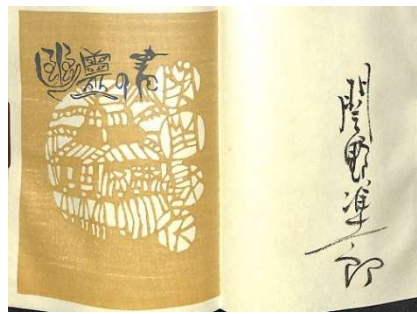 幽霊の書
関野凖一郎